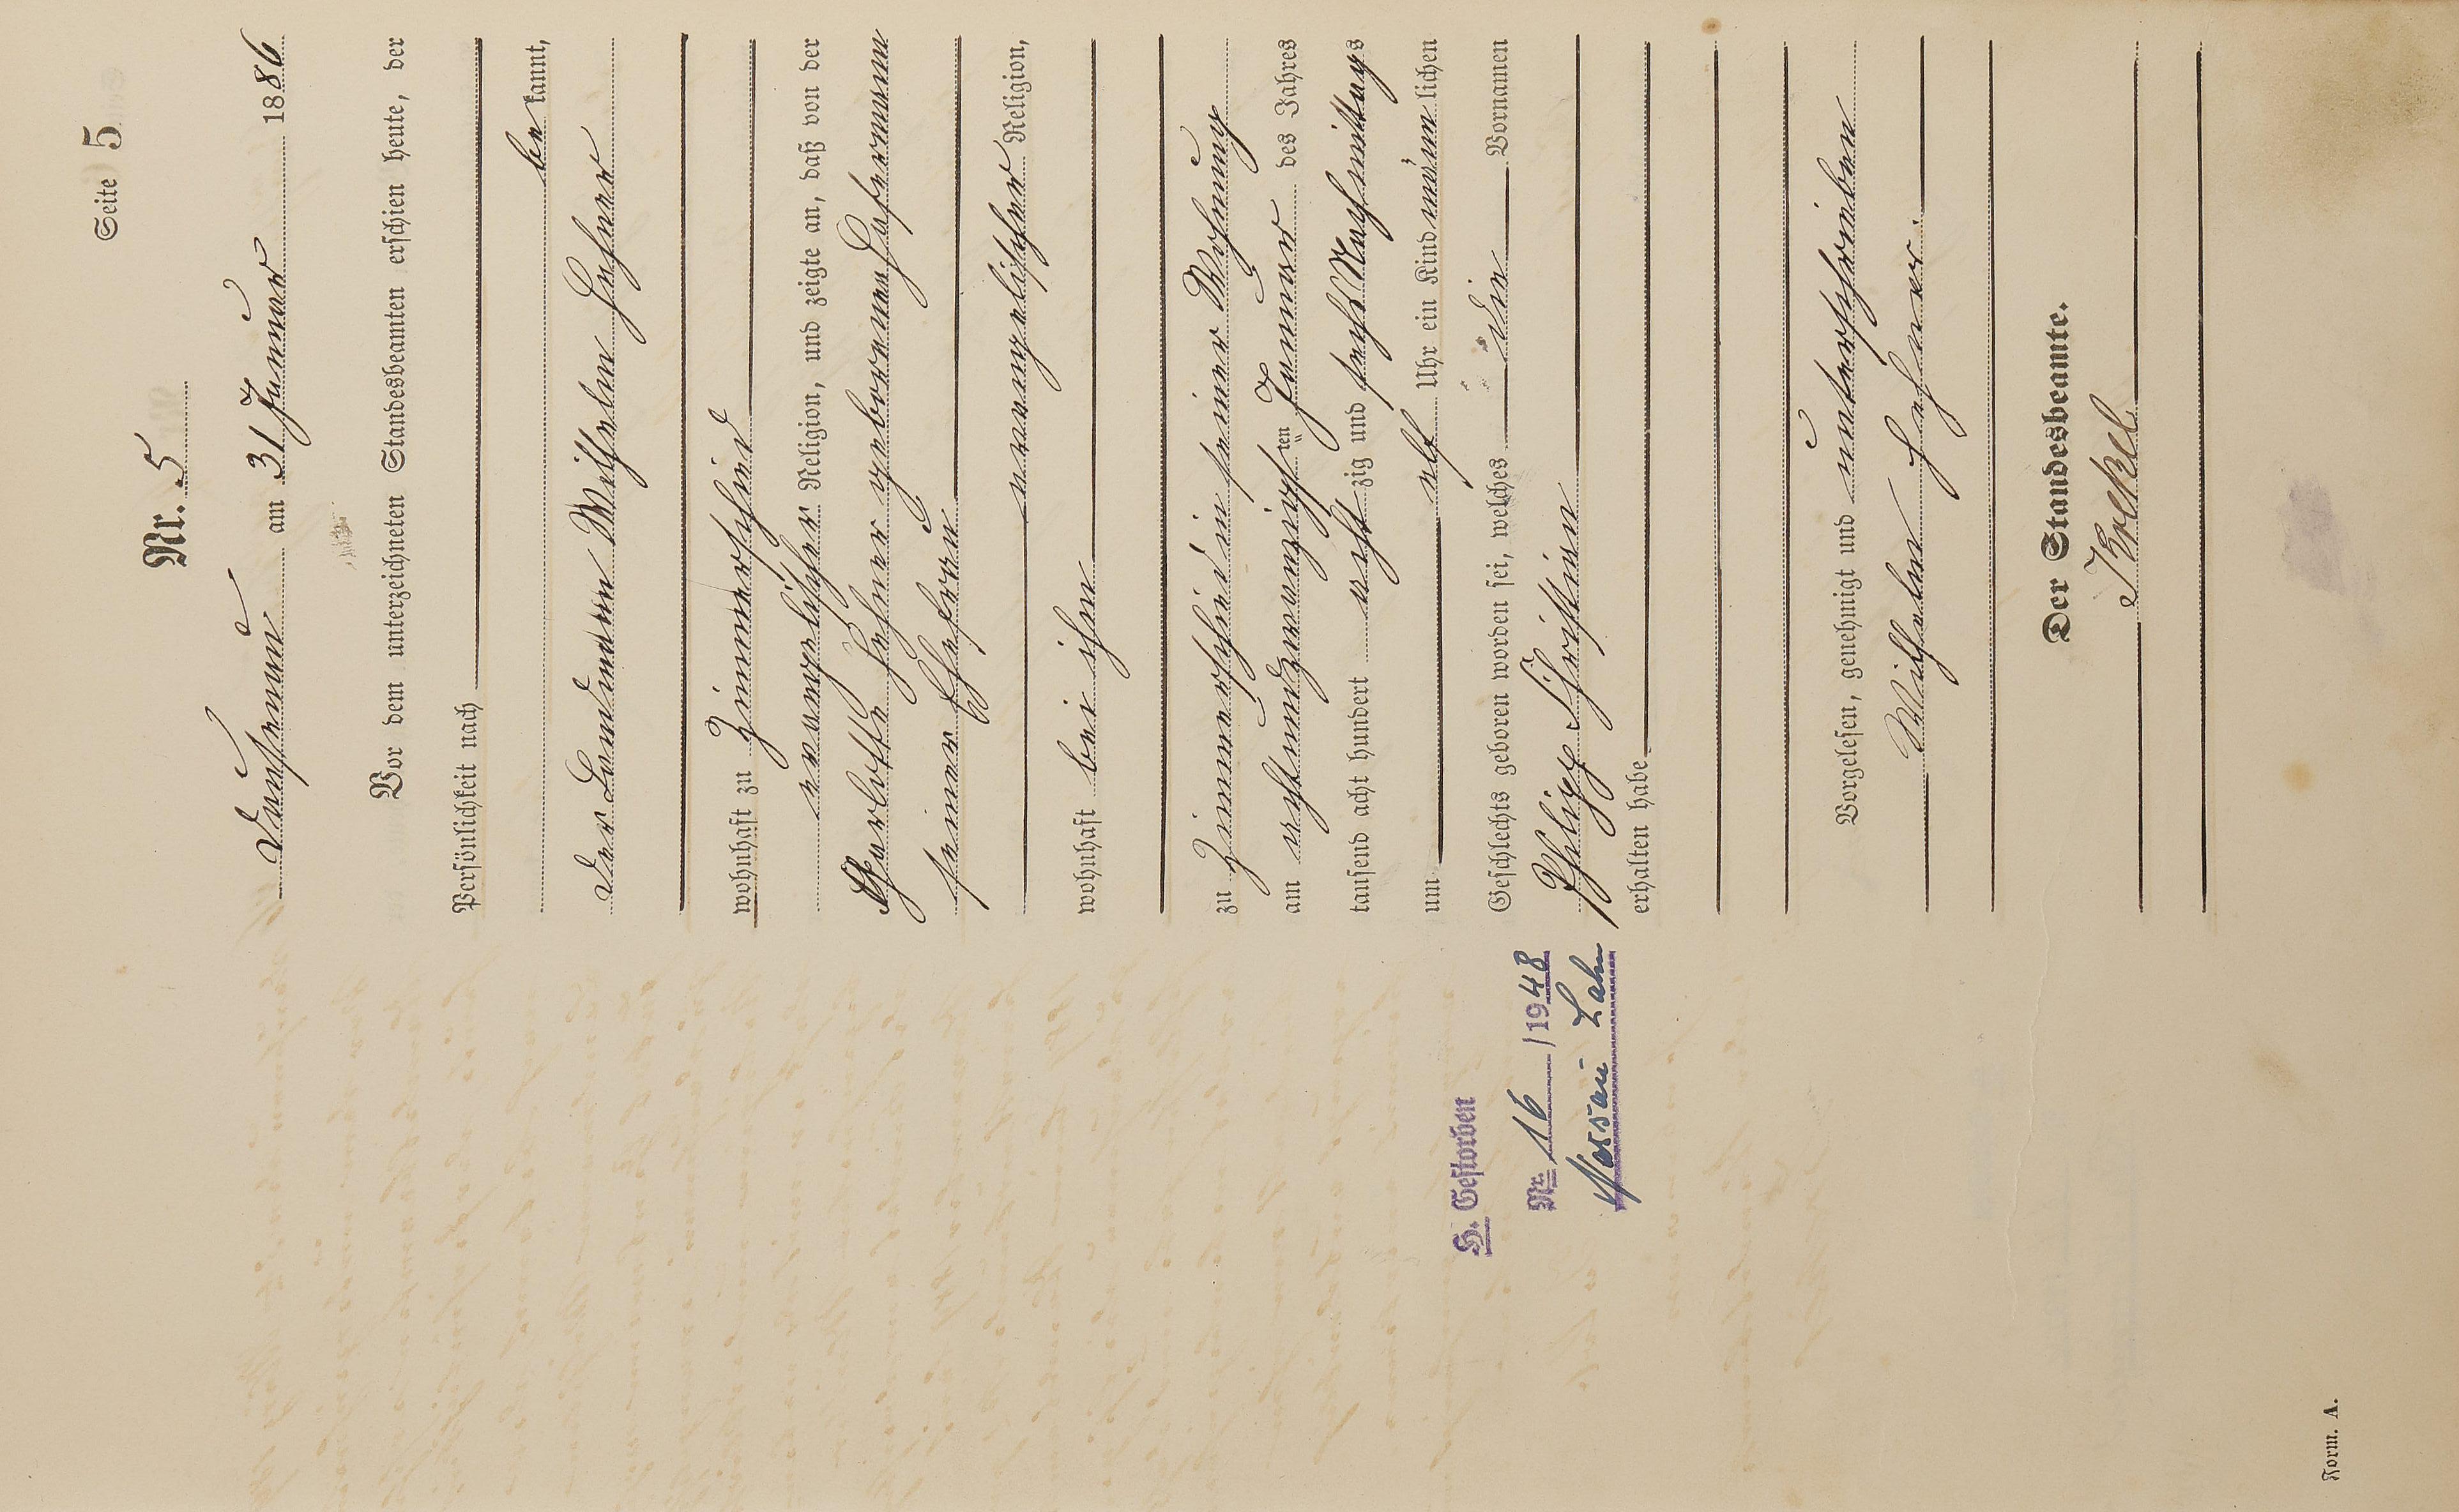 Seite 5
Nr. 5
Dausenau am 31 Januar 1886
Vor dem unterzeichneten Standesbeamten erschien heute, der
Persönlichkeit nach
be kannt,
der Landmann Wilhelm Lehner
wohnhaft zu Zimmerschied
evangelischer Religion, und zeigte an, daß von der
geborenen
seiner Ehefrau
evangelischer Religion,
wohnhaft bei ihm
zu Zimmerschied in seiner Wohnung
am achtundzwanzigsten Januar des Jahres
tausend acht hundert acht zig und sechs Nachmittags
um elf Uhr ein Kind männlichen
Geschlechts geboren worden sei, welches die Vornamen
Philipp Christian
erhalten habe
Vorgelesen, genehmigt und unterschrieben
Wilhelm Lehner.
Der Standesbeamte.
H. Gestorben
Nr. 16 / 1948
Nassau Lahn
Form. A.